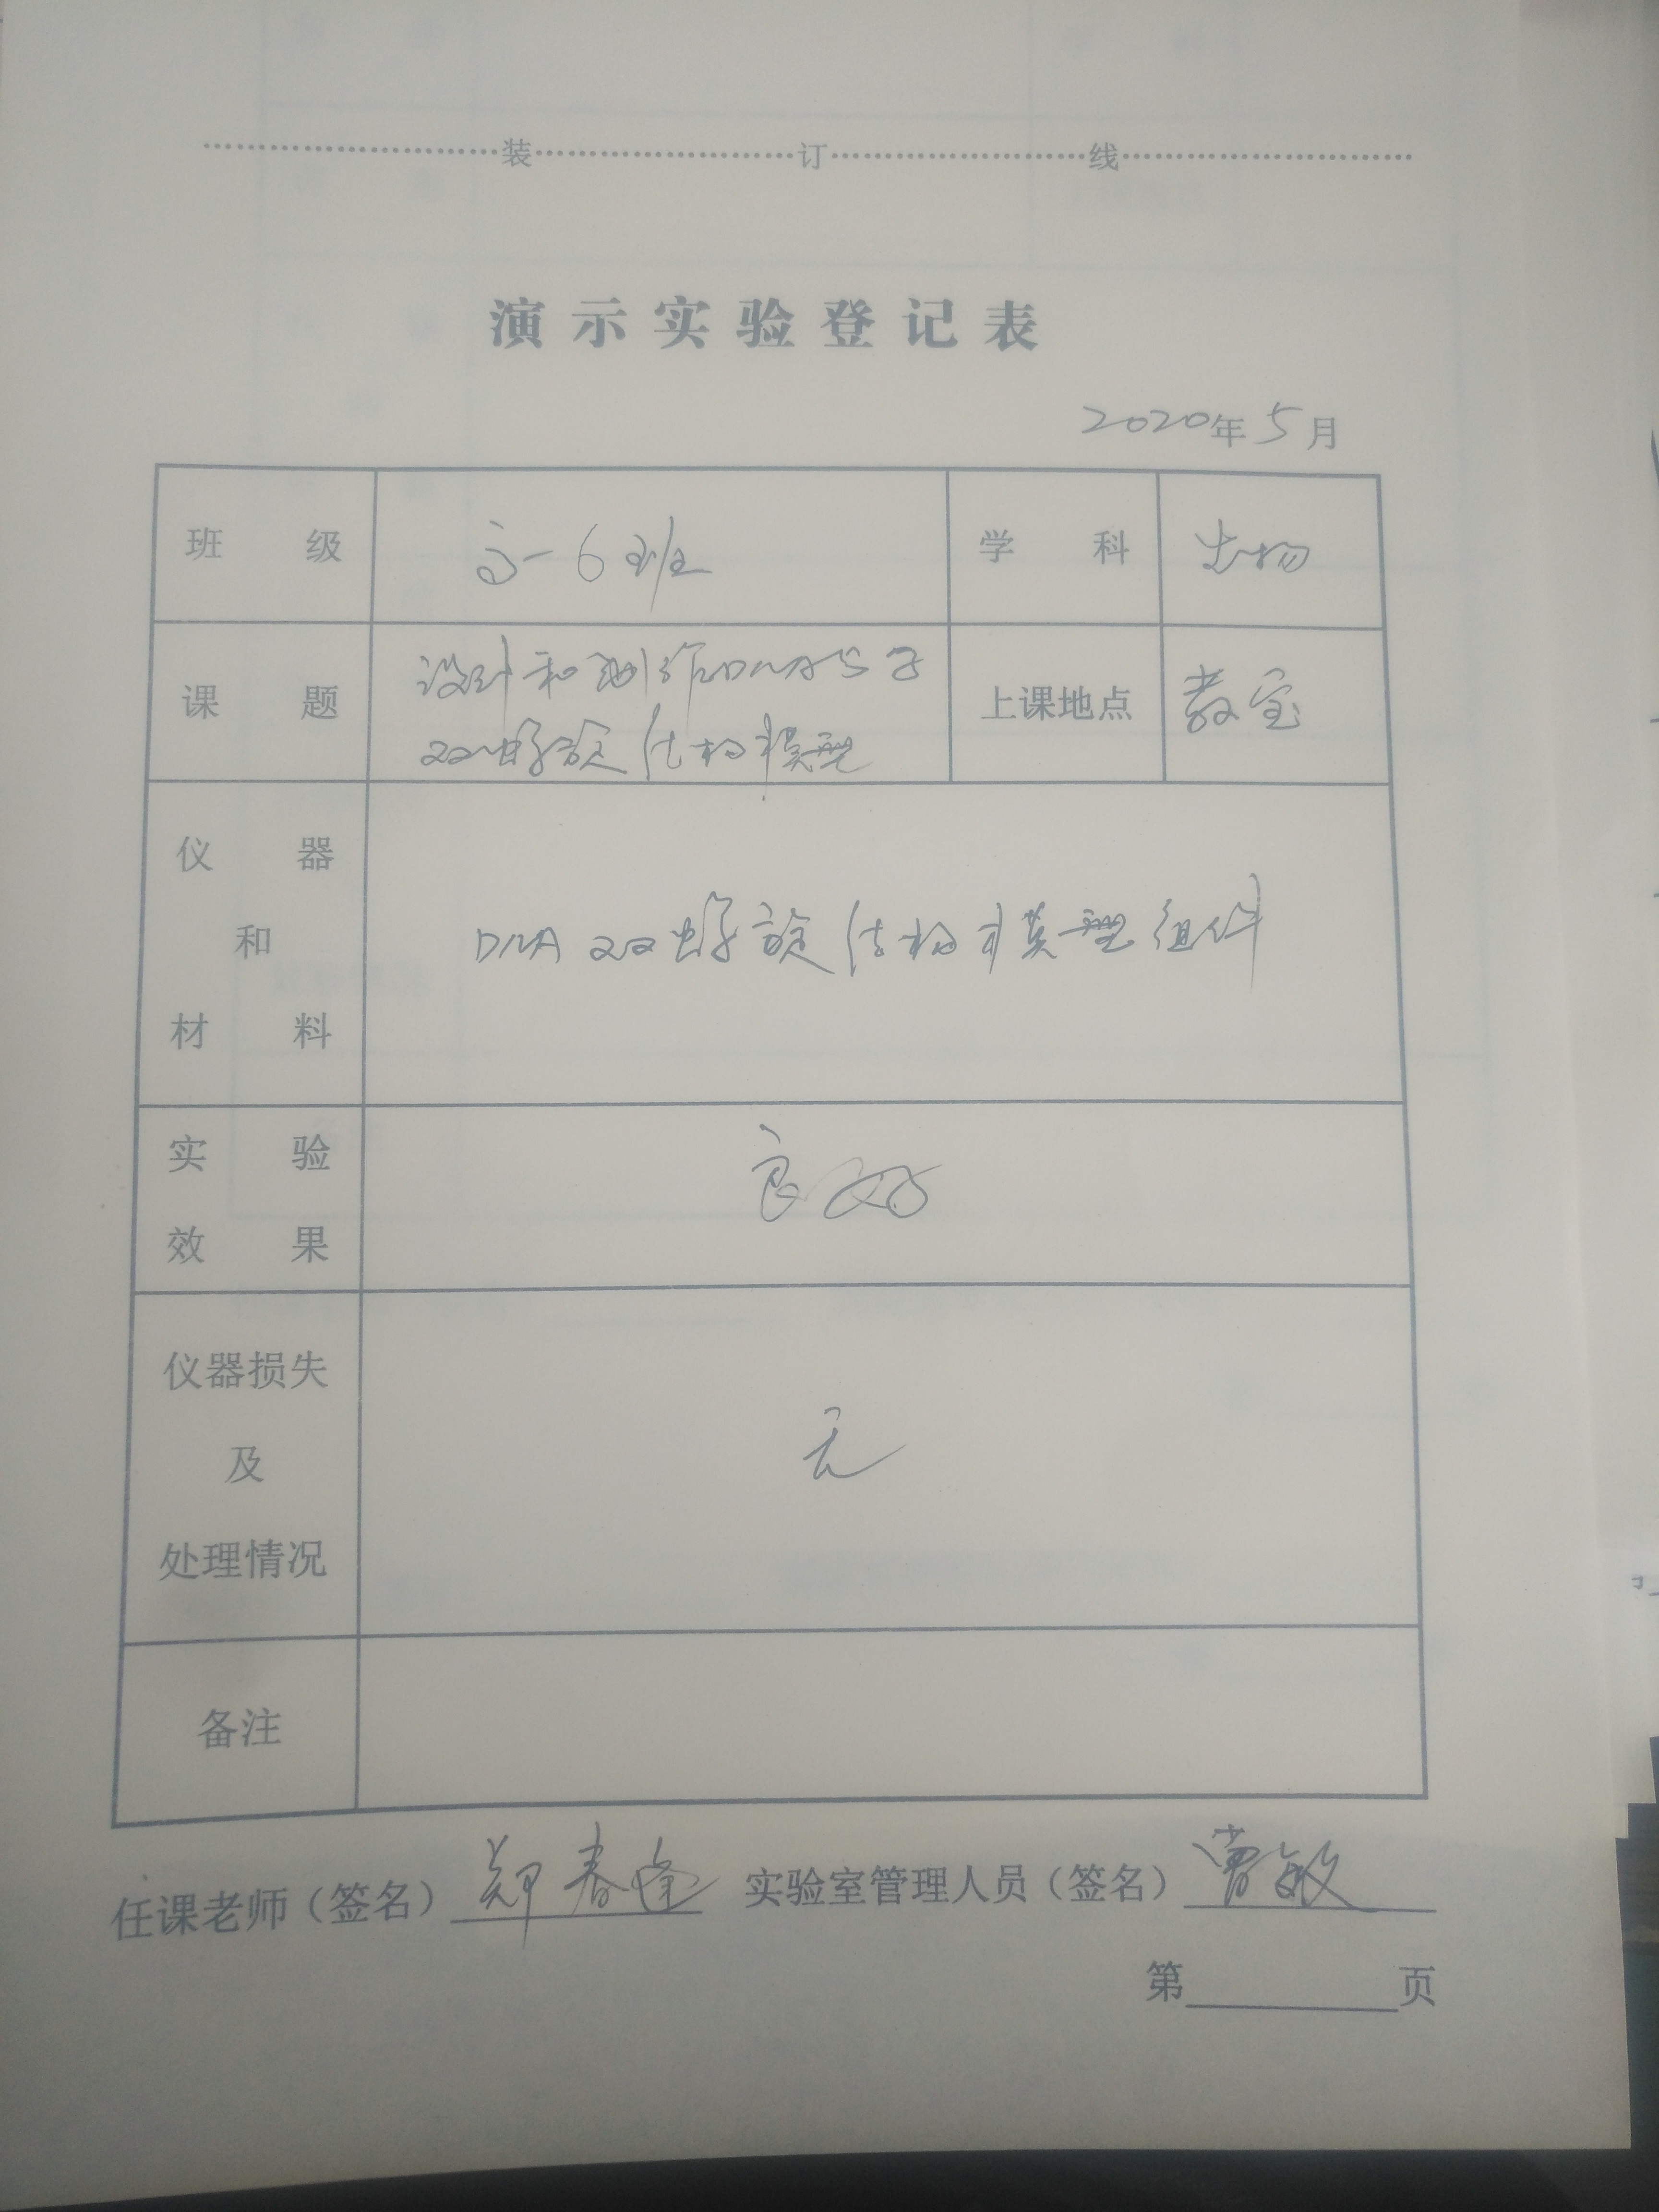 装订线
演示实验登记表
2020年5月
班级 高一6班 学科 生物
课题 设计和制作DNA分子
双螺旋结构模型 上课地点 教室
仪器
和
材料
DNA双螺旋结构模型组件
实验
效果
良好
仪器损失
及
处理情况
无
备注
任课老师（签名） 郑春 实验室管理人员（签名） 曹敏
第 页